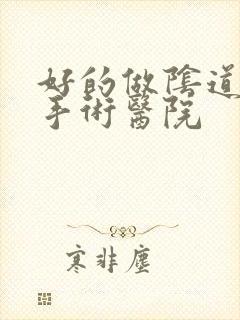 好的做陰道
手術醫院
寒非塵